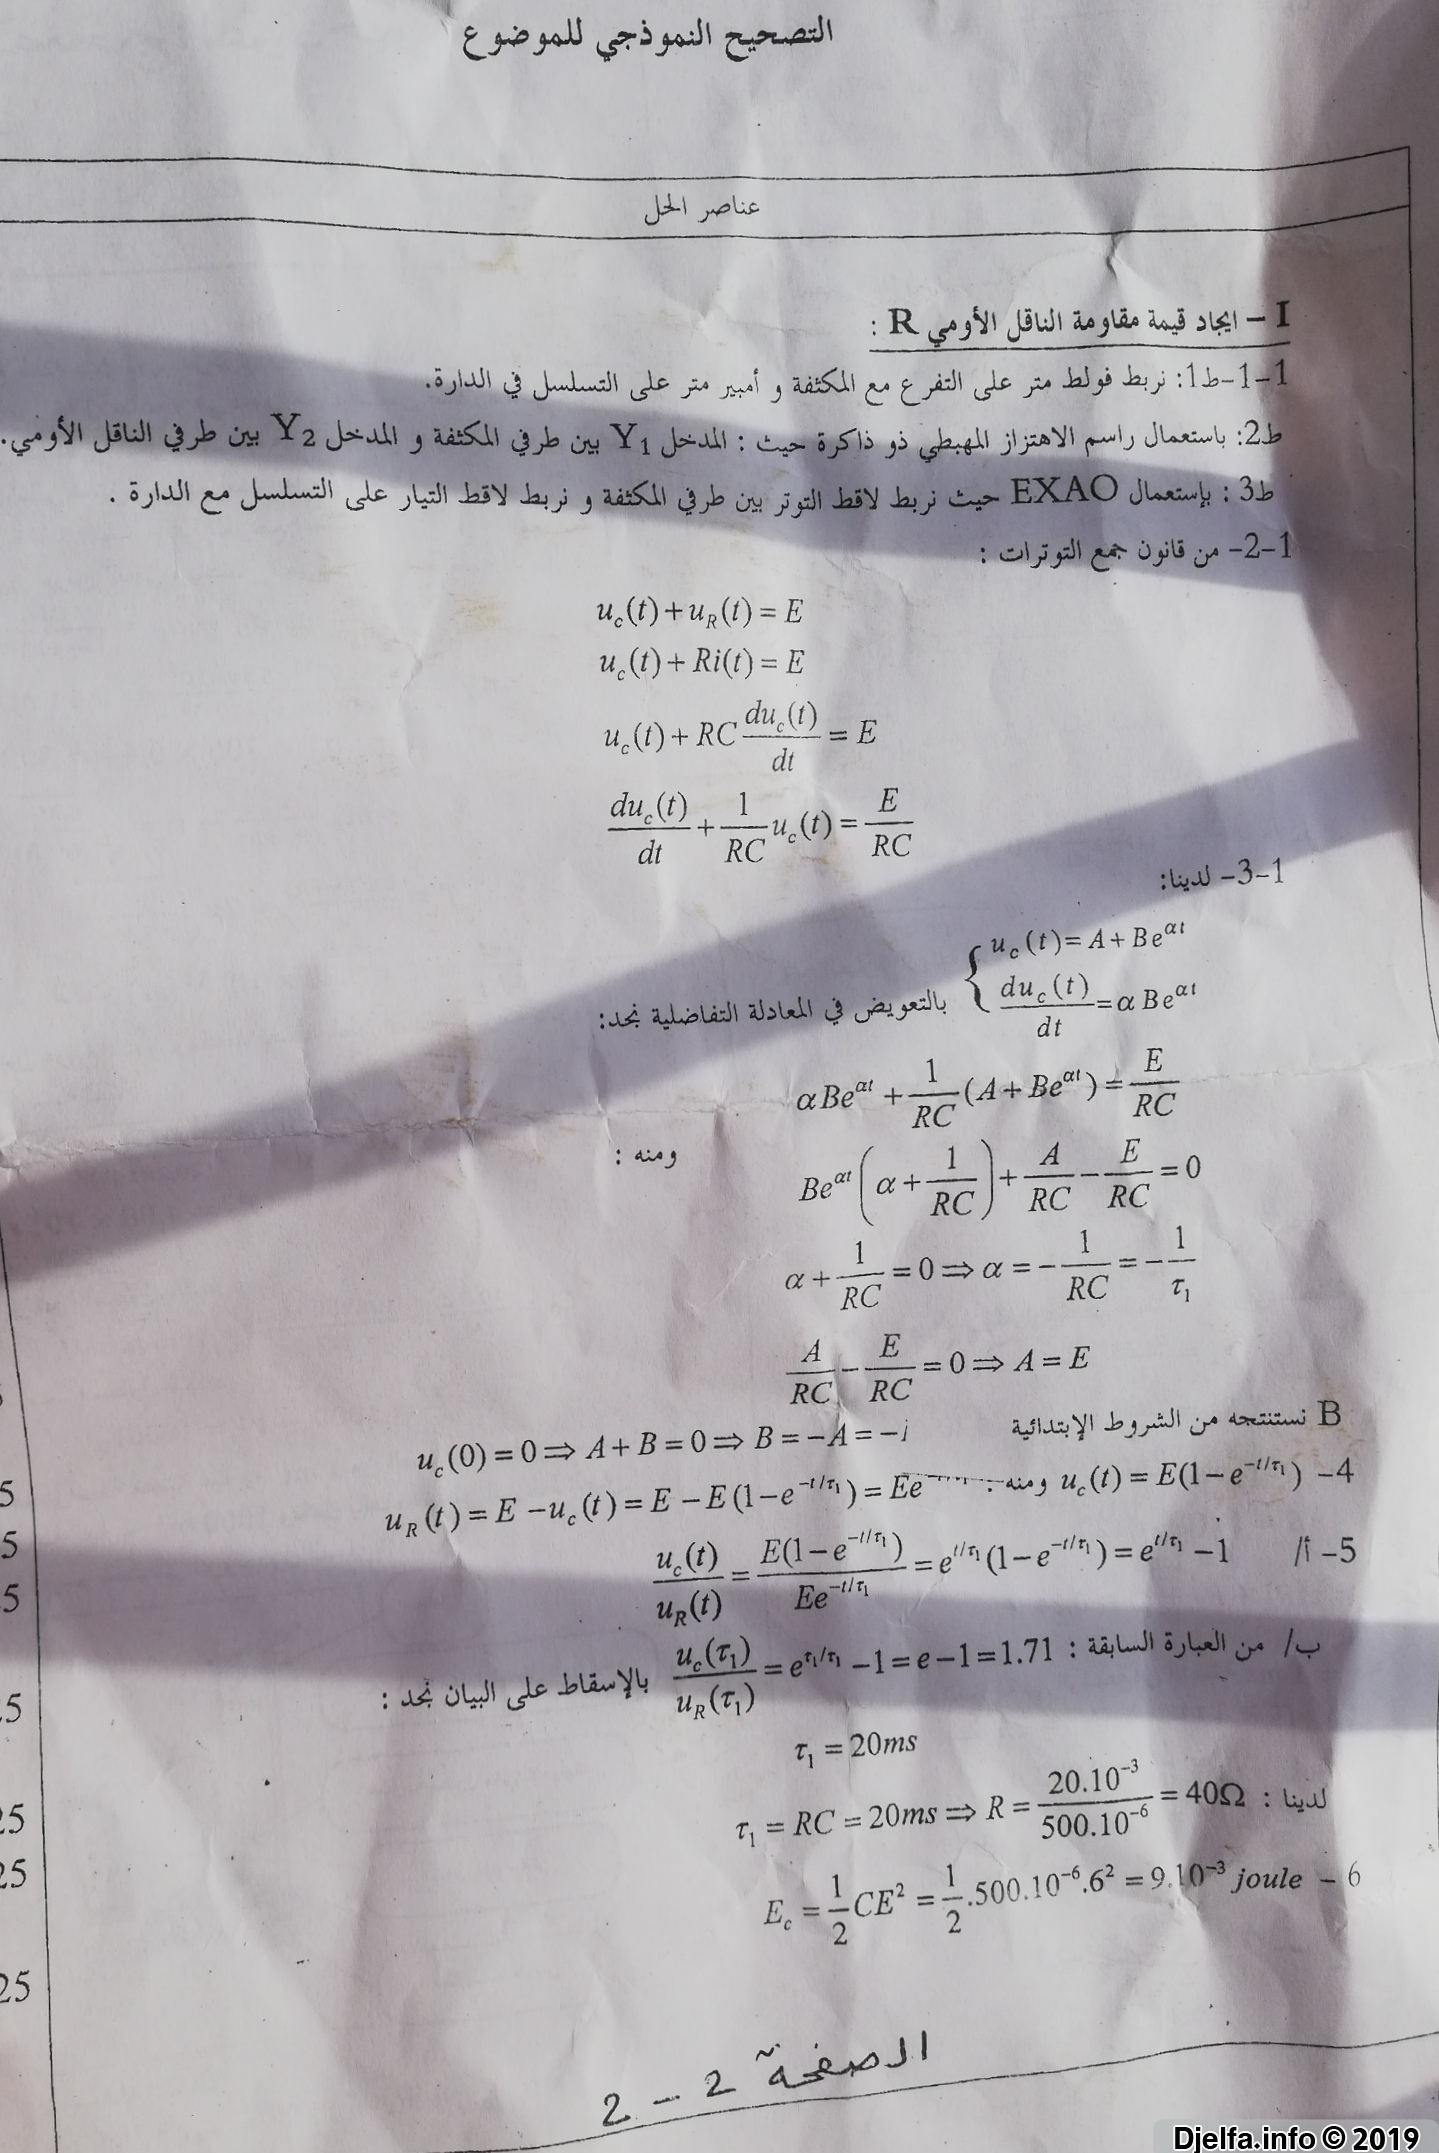 التصحيح النموذجي للموضوع
عناصر الحل
I – ايجاد قيمة مقاومة الناقل الأومي R :
1-1-ط1: نربط فولط متر على التفرع مع المكثفة و أمبير متر على التسلسل في الدارة.
ط2: باستعمال راسم الاهتزاز المهبطي ذو ذاكرة حيث : المدخل Y₁ بين طرفي المكثفة و المدخل Y₂ بين طرفي الناقل الأومي.
ط3 : بإستعمال EXAO حيث نربط لاقط التوتر بين طرفي المكثفة و نربط لاقط التيار على التسلسل مع الدارة .
1-2- من قانون جمع التوترات :
u_c(t) + u_R(t) = E
u_c(t) + Ri(t) = E
u_c(t) + RC du_c(t)/dt = E
du_c(t)/dt + 1/RC u_c(t) = E/RC
1-3- لدينا:
u_c(t) = A + Be^{αt}
du_c(t)/dt = α Be^{αt} بالتعويض في المعادلة التفاضلية نجد:
αBe^{αt} + 1/RC (A + Be^{αt}) = E/RC
ومنه :
Be^{αt}(α + 1/RC) + A/RC − E/RC = 0
α + 1/RC = 0 ⇒ α = −1/RC = −1/τ₁
A/RC − E/RC = 0 ⇒ A = E
B نستنتجه من الشروط الإبتدائية u_c(0) = 0 ⇒ A + B = 0 ⇒ B = −A = −
4- u_c(t) = E(1 − e^{−t/τ₁}) ومنه : u_R(t) = E − u_c(t) = E − E(1 − e^{−t/τ₁}) = Ee
5- أ/ u_c(t)/u_R(t) = E(1 − e^{−t/τ₁})/Ee^{−t/τ₁} = e^{t/τ₁}(1 − e^{−t/τ₁}) = e^{t/τ₁} − 1
ب/ من العبارة السابقة : u_c(τ₁)/u_R(τ₁) = e^{τ₁/τ₁} − 1 = e − 1 = 1.71 بالإسقاط على البيان نجد :
τ₁ = 20ms
لدينا : τ₁ = RC = 20ms ⇒ R = 20.10⁻³/500.10⁻⁶ = 40Ω
6 – E_c = 1/2 CE² = 1/2 .500.10⁻⁶.6² = 9.10⁻³ joule
5
5
5
25
25
25
25
الصفحة 2 – 2
Djelfa.info © 2019